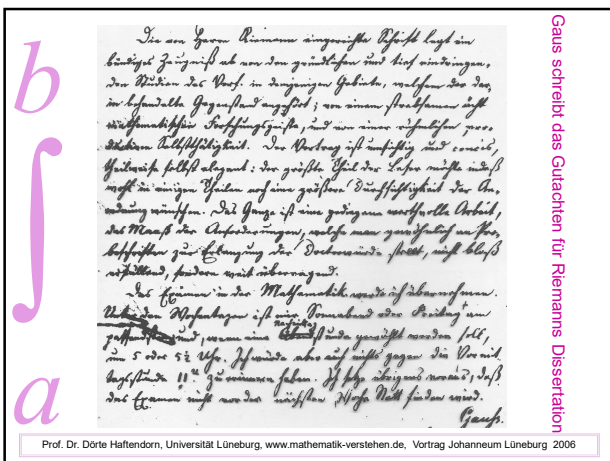 b
∫
a
Die von Herrn Riemann eingereichte Schrift legt ein
bündiges Zeugniß ab von den gründlichen und tief eindringen-
den Studien des Verf. in demjenigen Gebiete, welchem der dar-
in behandelte Gegenstand angehört; von einem strebsamen ächt
mathematischen Forschungsgeiste, und von einer rühmlichen pro-
ductiven Selbstthätigkeit. Der Vortrag ist umsichtig und concis,
theilweise selbst elegant: der größte Theil der Leser möchte indeß
wohl in einigen Theilen noch eine größere Durchsichtigkeit der An-
ordnung wünschen. Das Ganze ist eine gediegene werthvolle Arbeit,
das Maaß der Anforderungen, welche man gewöhnlich an Pro-
beschriften zur Erlangung der Doctorwürde stellt, nicht bloß
erfüllend, sondern weit überragend.
Das Examen in der Mathematik werde ich übernehmen.
Unter den Wochentagen ist mir Sonnabend oder Freitag am
passendsten und, wenn eine
nachmittags
stunde gewählt werden soll,
um 5 oder 5½ Uhr. Ich würde aber auch nichts gegen die Vormit-
tagsstunde 11 zu erinnern haben. Ich setze übrigens voraus, daß
das Examen nicht vor der nächsten Woche Statt finden wird.
Gauß.
Gaus schreibt das Gutachten für Riemanns Dissertation
Prof. Dr. Dörte Haftendorn, Universität Lüneburg, www.mathematik-verstehen.de, Vortrag Johanneum Lüneburg 2006